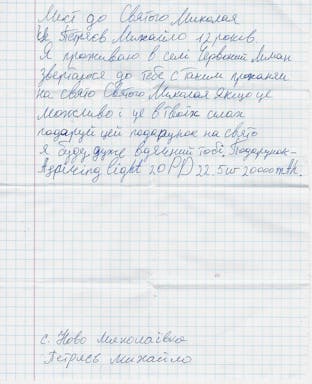 Лист до Святого Миколая
Я Петрясь Михайло 12 років
Я проживаю в селі Червоний Лиман
звертаюся до тебе с таким проханям
на свято Святого Миколая якщо це
можливо і це в твоїх силах
подаруй цей подарунок на свято
я буду дуже вдячний тобі. Подарунок-
light 20 PD 22.5W 20000mAh.
с. Ново Миколаївка
Петрясь Михайло